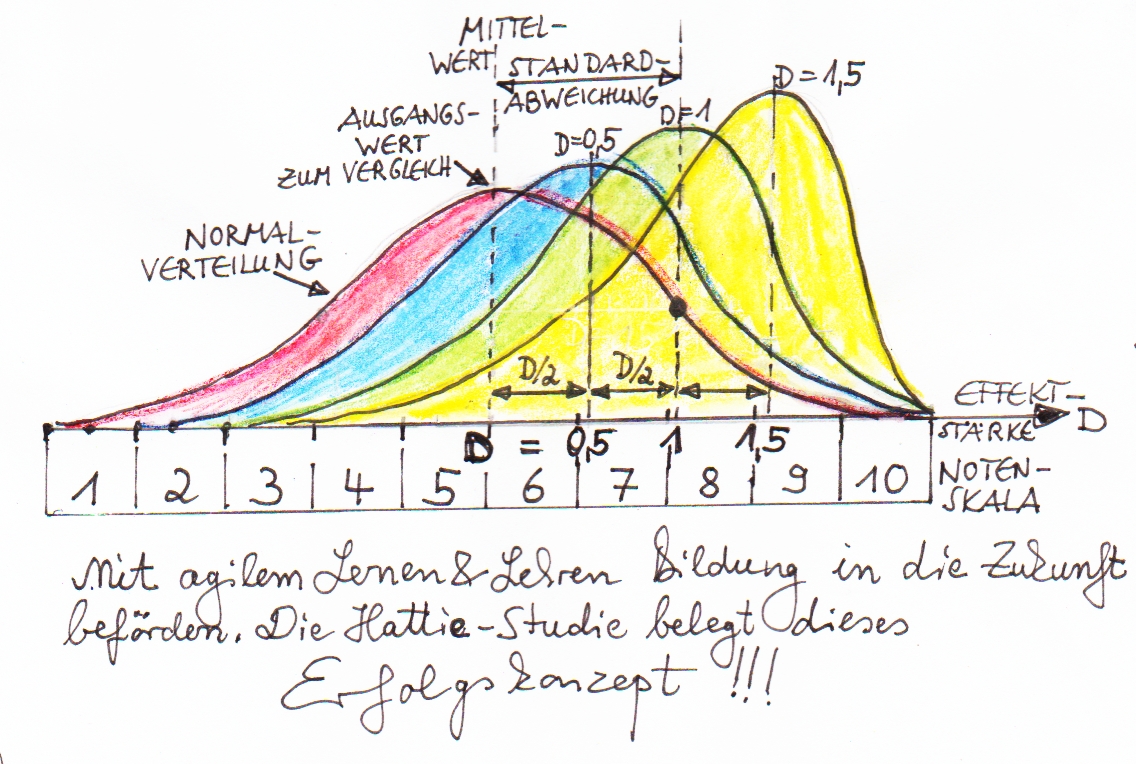 MITTEL-
WERT
STANDARD-
ABWEICHUNG
D=1,5
D=1
D=0,5
AUSGANGS-
WERT
ZUM VERGLEICH
NORMAL-
VERTEILUNG
D/2 D/2
EFFEKT-
STÄRKE D
D = 0,5 1 1,5
1 2 3 4 5 6 7 8 9 10
NOTEN-
SKALA
Mit agilem Lernen & Lehren Bildung in die Zukunft
befördern. Die Hattie-Studie belegt dieses
Erfolgskonzept !!!